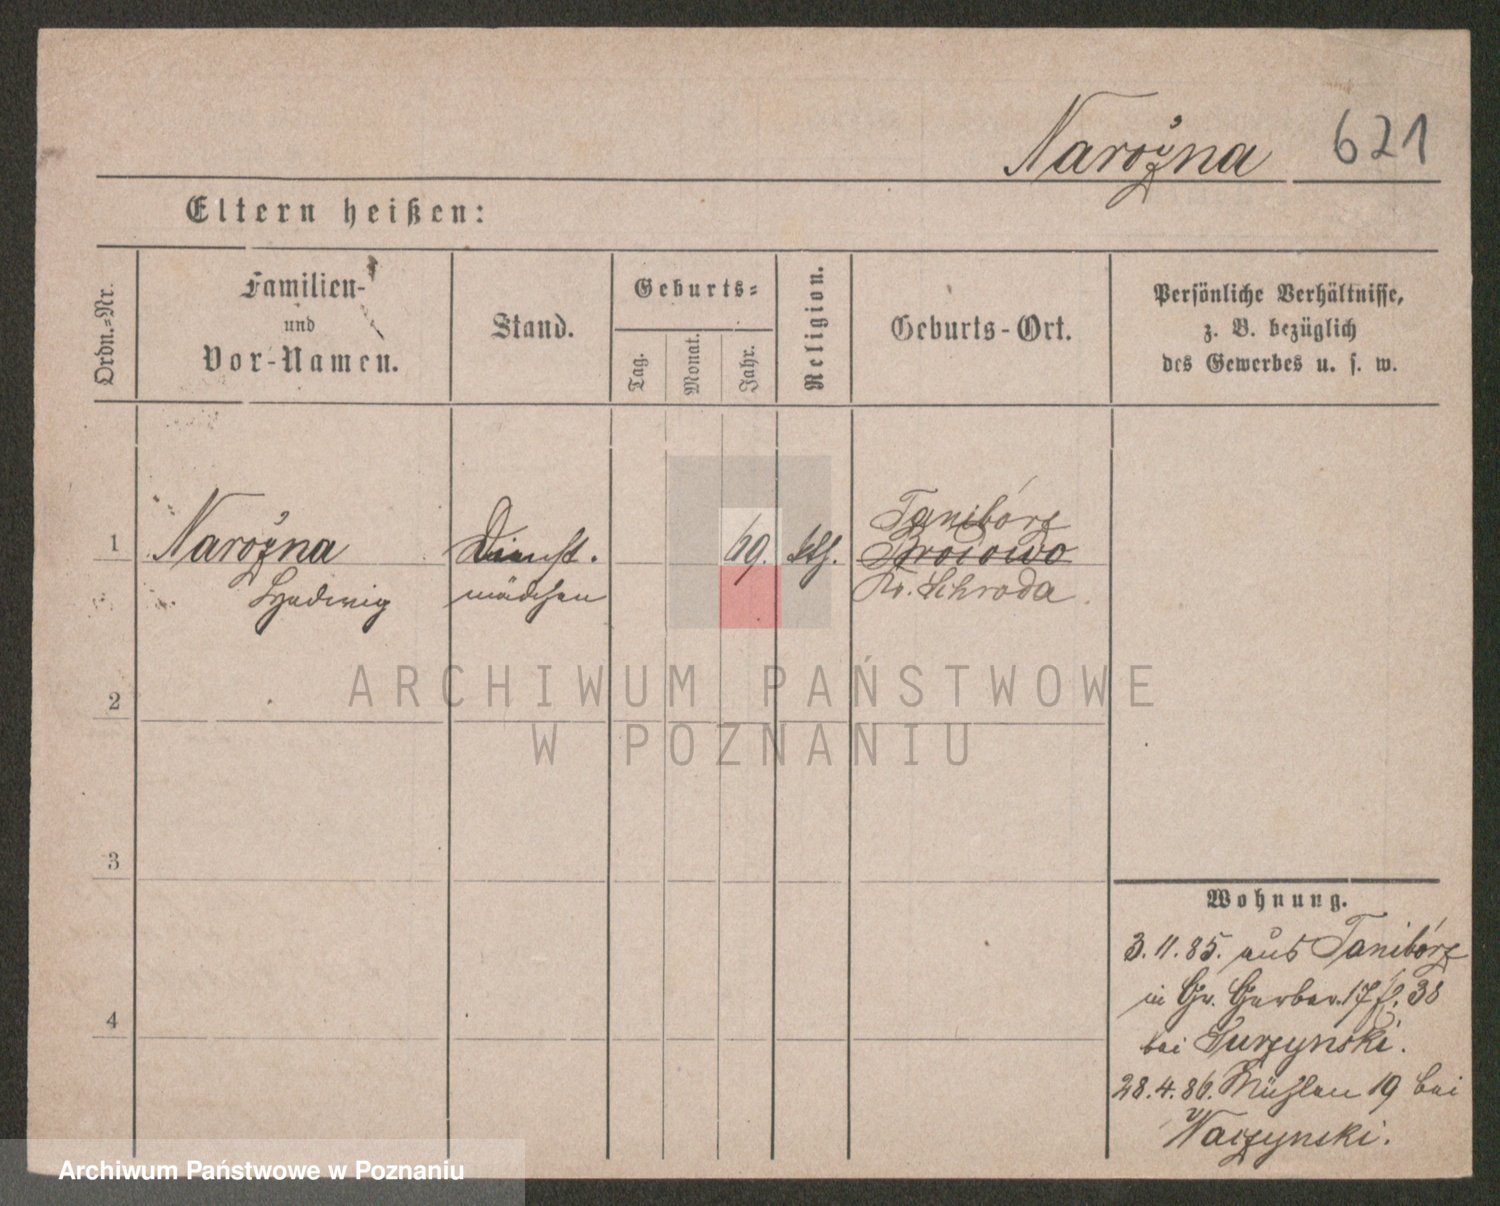 Narożna 621
Eltern heißen:
Ordn.-Nr.
Familien-
und
Vor-Namen.
Stand.
Geburts-
Tag.
Monat.
Jahr.
Religion.
Geburts-Ort.
Persönliche Verhältnisse,
z. B. bezüglich
des Gewerbes u. s. w.
1 Narożna
Hedwig
Dienst-
mädchen
69. kth.
Tanibórz
Kr. Schroda
2
3
4
Wohnung.
3.11.85. aus Tanibórz
in Gr. Gerber. 17 f. 38
bei Turzynski.
28.4.86. Mühlen 19 bei
Warzynski.
ARCHIWUM PAŃSTWOWE
W POZNANIU
Archiwum Państwowe w Poznaniu